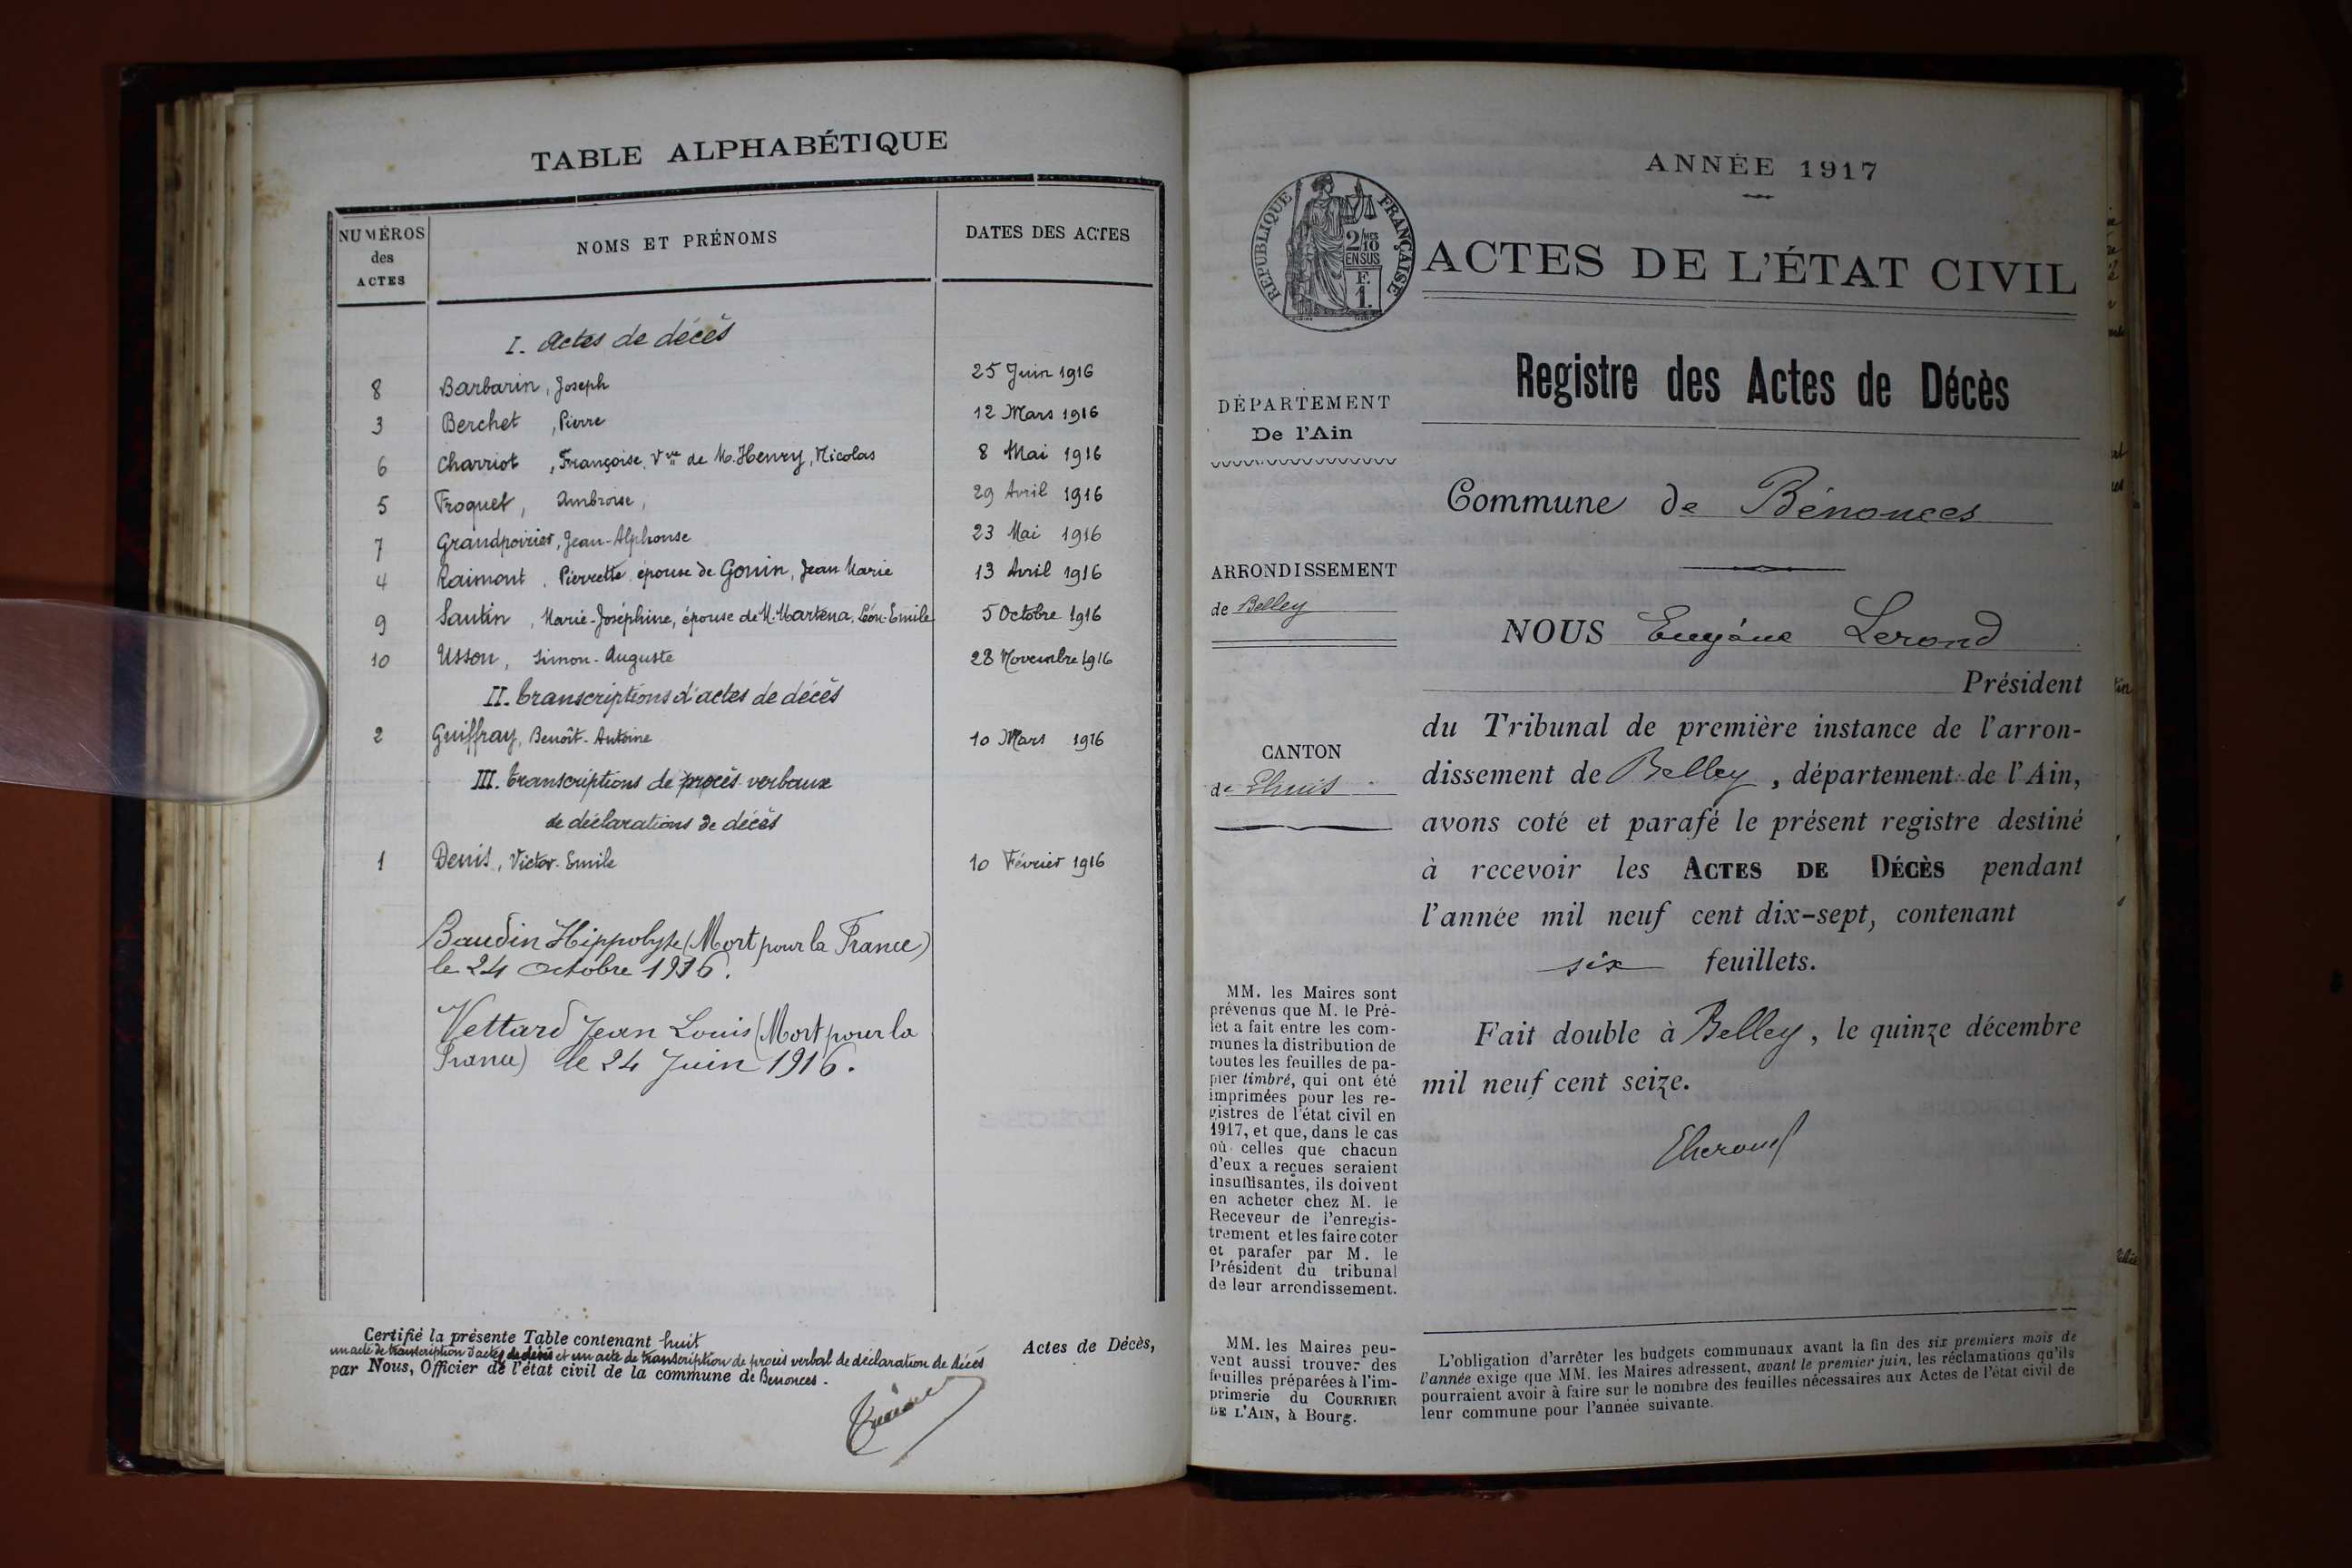 TABLE ALPHABÉTIQUE
NUMÉROS
des
ACTES
NOMS ET PRÉNOMS
DATES DES ACTES
I. Actes de décès
8 Barbarin, Joseph 25 Juin 1916
3 Berchet, Pierre 12 Mars 1916
6 Charriot, Françoise, Vve de M. Henry, Nicolas 8 Mai 1916
5 Froquet, Ambroise, 29 Avril 1916
7 Grandpoirier, Jean-Alphonse 23 Mai 1916
4 Raimont, Pierrette, épouse de Gonin, Jean Marie 13 Avril 1916
9 Santin, Marie-Joséphine, épouse de M. Martena, Léon-Emile 5 Octobre 1916
10 Usson, Simon-Auguste 28 Novembre 1916
II. transcriptions d'actes de décès
2 Guiffray, Benoît-Antoine 10 Mars 1916
III. transcriptions de procès verbaux
de déclarations de décès
1 Denis, Victor-Emile 10 Février 1916
Baudin Hippolyte (Mort pour la France)
le 24 octobre 1916.
Vettard Jean Louis (Mort pour la
France) le 24 Juin 1916.
Certifié la présente Table contenant huit Actes de Décès,
un acte de transcription d'actes de décès et un acte de transcription de procès verbal de déclaration de décès
par Nous, Officier de l'état civil de la commune de Benonces.
ANNÉE 1917
RÉPUBLIQUE FRANÇAISE
2/10MES
EN SUS
F.
1.
ACTES DE L'ÉTAT CIVIL
Registre des Actes de Décès
DÉPARTEMENT
De l'Ain
Commune de Bénonces
ARRONDISSEMENT
de Belley
NOUS Eugène Lerond
Président
du Tribunal de première instance de l'arron-
dissement de Belley, département de l'Ain,
avons coté et parafé le présent registre destiné
à recevoir les ACTES DE DÉCÈS pendant
l'année mil neuf cent dix-sept, contenant
six feuillets.
CANTON
de Lhuis
Fait double à Belley, le quinze décembre
mil neuf cent seize.
MM. les Maires sont
prévenus que M. le Pré-
fet a fait entre les com-
munes la distribution de
toutes les feuilles de pa-
pier timbré, qui ont été
imprimées pour les re-
gistres de l'état civil en
1917, et que, dans le cas
où celles que chacun
d'eux a reçues seraient
insuffisantes, ils doivent
en acheter chez M. le
Receveur de l'enregis-
trement et les faire coter
et parafer par M. le
Président du tribunal
de leur arrondissement.
MM. les Maires peu-
vent aussi trouver des
feuilles préparées à l'im-
primerie du COURRIER
DE L'AIN, à Bourg.
L'obligation d'arrêter les budgets communaux avant la fin des six premiers mois de
l'année exige que MM. les Maires adressent, avant le premier juin, les réclamations qu'ils
pourraient avoir à faire sur le nombre des feuilles nécessaires aux Actes de l'état civil de
leur commune pour l'année suivante.